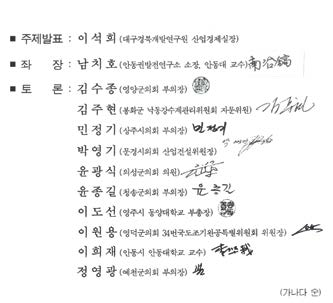 ■ 주제발표 : 이석희 (대구경북개발연구원 산업경제실장)
■ 좌 장 : 남치호 (안동권발전연구소 소장, 안동대 교수)
■ 토 론 : 김수종 (영양군의회 부의장)
김주현 (봉화군 낙동강수계관리위원회 자문위원)
민정기 (상주시의회 부의장) 민정기
박영기 (문경시의회 산업건설위원장)
윤광식 (의성군의회 의원)
윤종길 (청송군의회 부의장) 윤종길
이도선 (영주시 동양대학교 부총장)
이원용 (영덕군의회 34번국도조기완공특별위원회 위원장)
이희재 (안동시 안동대학교 교수)
정영광 (예천군의회 부의장)
(가나다 순)